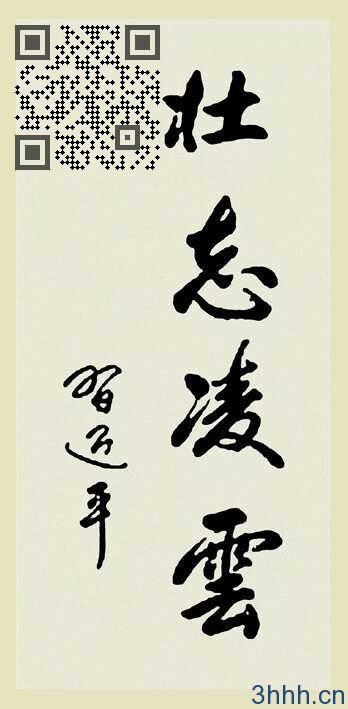 壮志凌雲
習近平
3hhh.cn